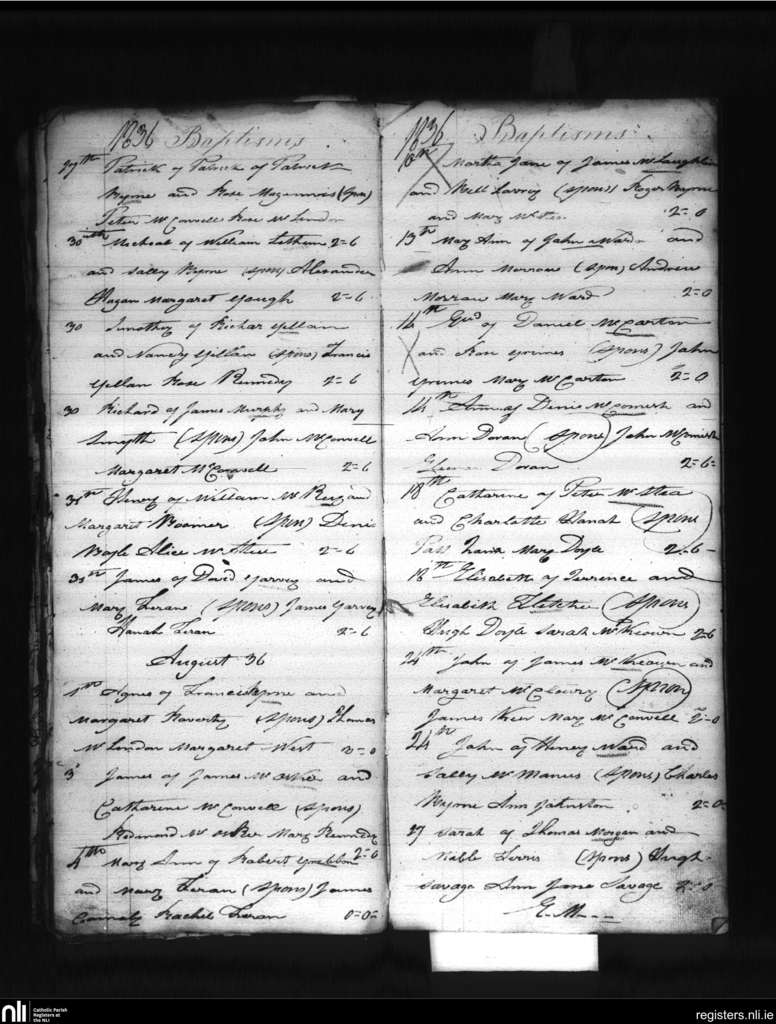 1836 Baptisms
27th Patrick of Patrick of Patrick
Byrne and Rose Magennis (Spons)
Peter McConvell Rose McLindon
30th Micheal of William Latham 2=6
and Sally Byrne (Spons) Alexander
Hagan Margaret Gough 2=6
30 Timothey of Richar Gillan
and Nancy Gillan (Spons) Francis
Gillan Rose Kennedy 2=6
30 Richard of James Murphy and Mary
Smyth (Spons) John McConvell
Margaret McConvell 2=6
31st Henry of William and
Margaret Boomer (Spon) Denis
Boyle Alice 2=6
31st James of David Garvey and
Mary Feran (Spons) James Garvey
Hanah Feran 2=6
August 36
1st Agnes of Francis Byrne and
Margaret Haverty (Spons) Thomas
McLindon Margaret West 2=0
3d James of James and
Catharine McConvell (Spons)
Redmond Mary Kennedy
2=0
4th Mary Ann of Robert
and Mary Feran (Spons) James
Connely Rachel Feran 0=0=
1836 Baptisms
10th Martha Jane of James McLaughlin
and Bell Lavery (Spons) Roger Byrne
and Mary 2=0
13th Mary Ann of John Ward and
Ann Morrow (Spon) Andrew
Morrow Mary Ward 2=0
14th of Daniel McCartan
and Rose Grimes (Spons) John
Grimes Mary McCartan 2=0
14th Ann of Denis McComish and
Ann Doran (Spons) John McComish
Doran 2=6=
18th Catharine of Peter McShea
and Charlotte Hanah (Spons)
Patt Mary Doyle 2=6
18th Elisabeth of Terrence and
Elisabeth Fletcher (Spons)
Hugh Doyle Sarah McKeown 2=6
24th John of James McKeown and
Margaret McCleary (Spon)
James Keer Mary McConvell 2=0
24th John of Henry Ward and
Salley McManus (Spons) Charles
Byrne Ann Johnston 2=0
27 Sarah of Thomas Morgan and
Ferris (Spons) Hugh
Savage Ann Jane Savage 2=0
nli
Catholic Parish
Registers at
the NLI
registers.nli.ie